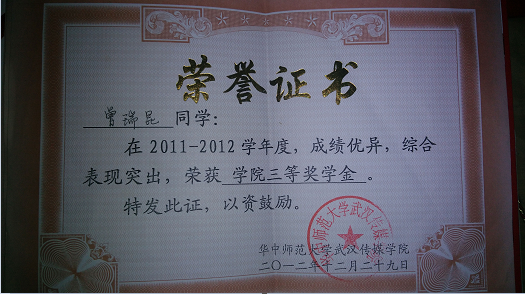 荣誉证书
曾瑞昆 同学:
在2011-2012学年度，成绩优异，综合
表现突出，荣获 学院三等奖学金 。
特发此证，以资鼓励。
华中师范大学武汉传媒学院
二〇一二年十二月二十九日